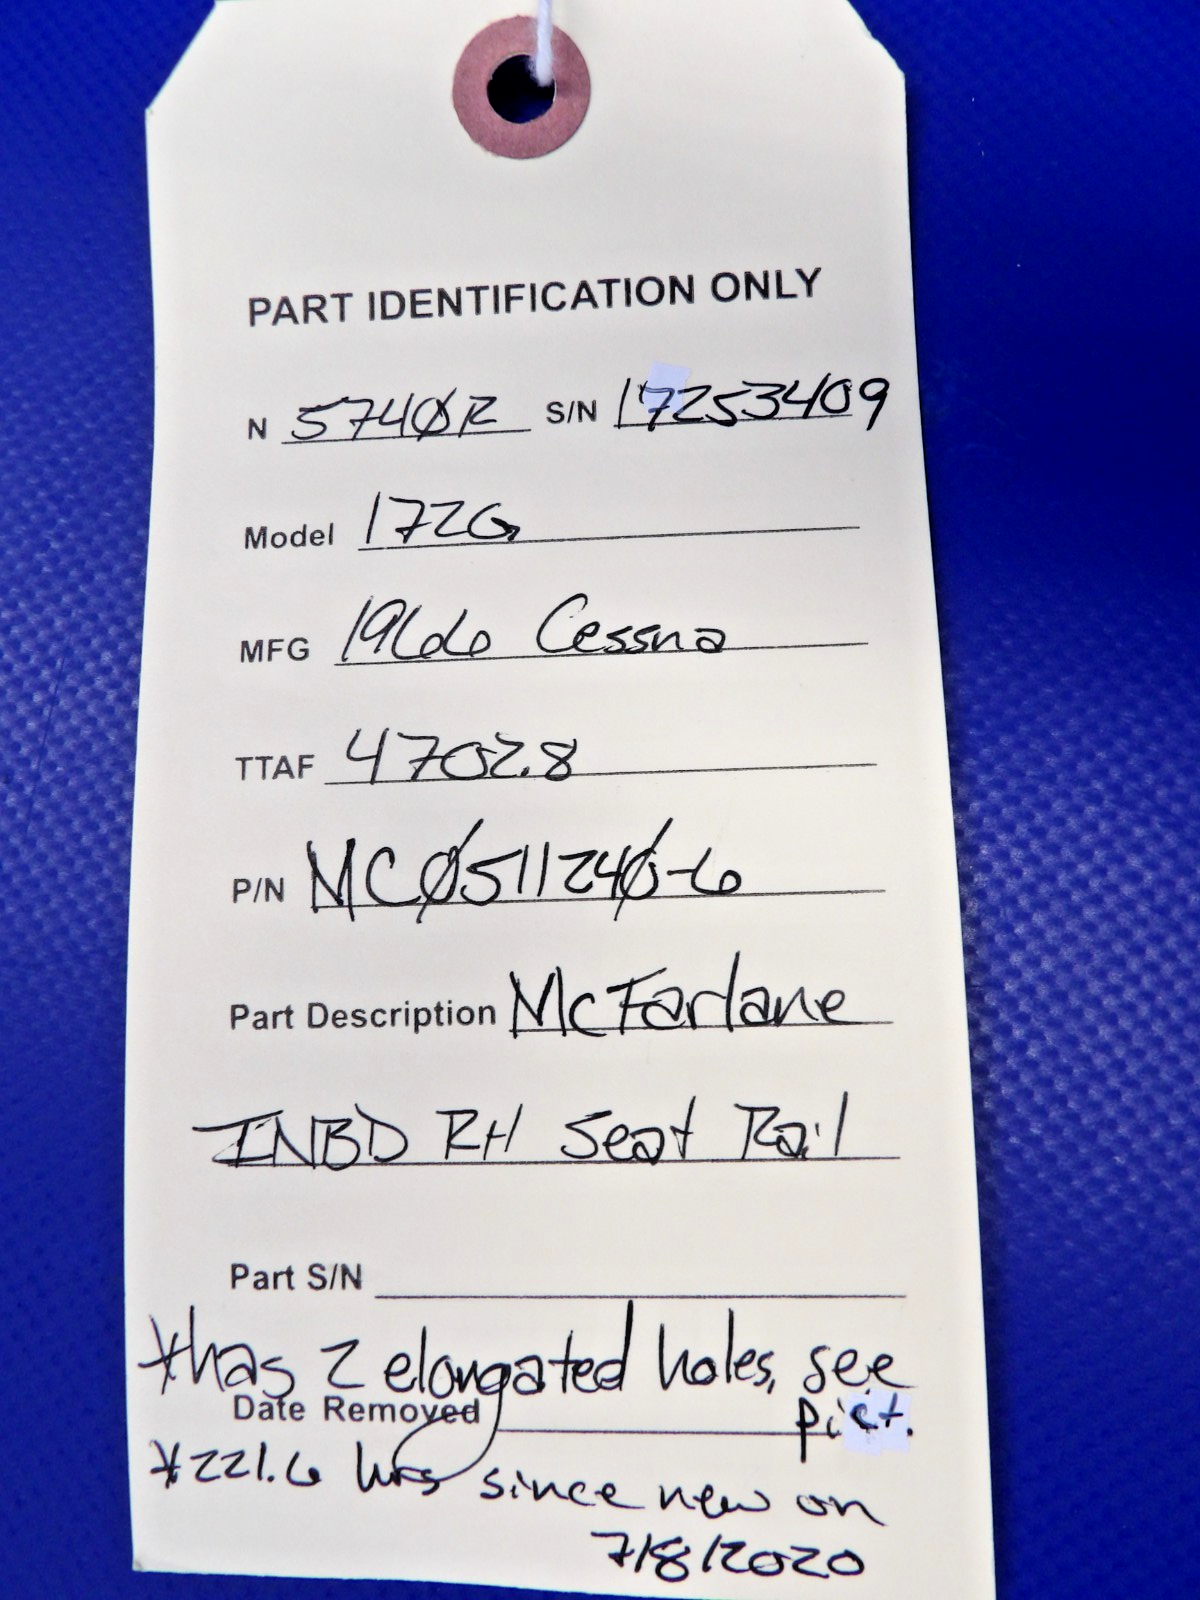 PART IDENTIFICATION ONLY
N 5740R S/N 17253409
Model 172G
MFG 1966 Cessna
TTAF 4702.8
P/N MC0511240-6
Part Description McFarlane
INBD RH Seat Rail
Part S/N
*has 2 elongated holes, see
Date Removed pict.
*221.6 hrs since new on
7/8/2020